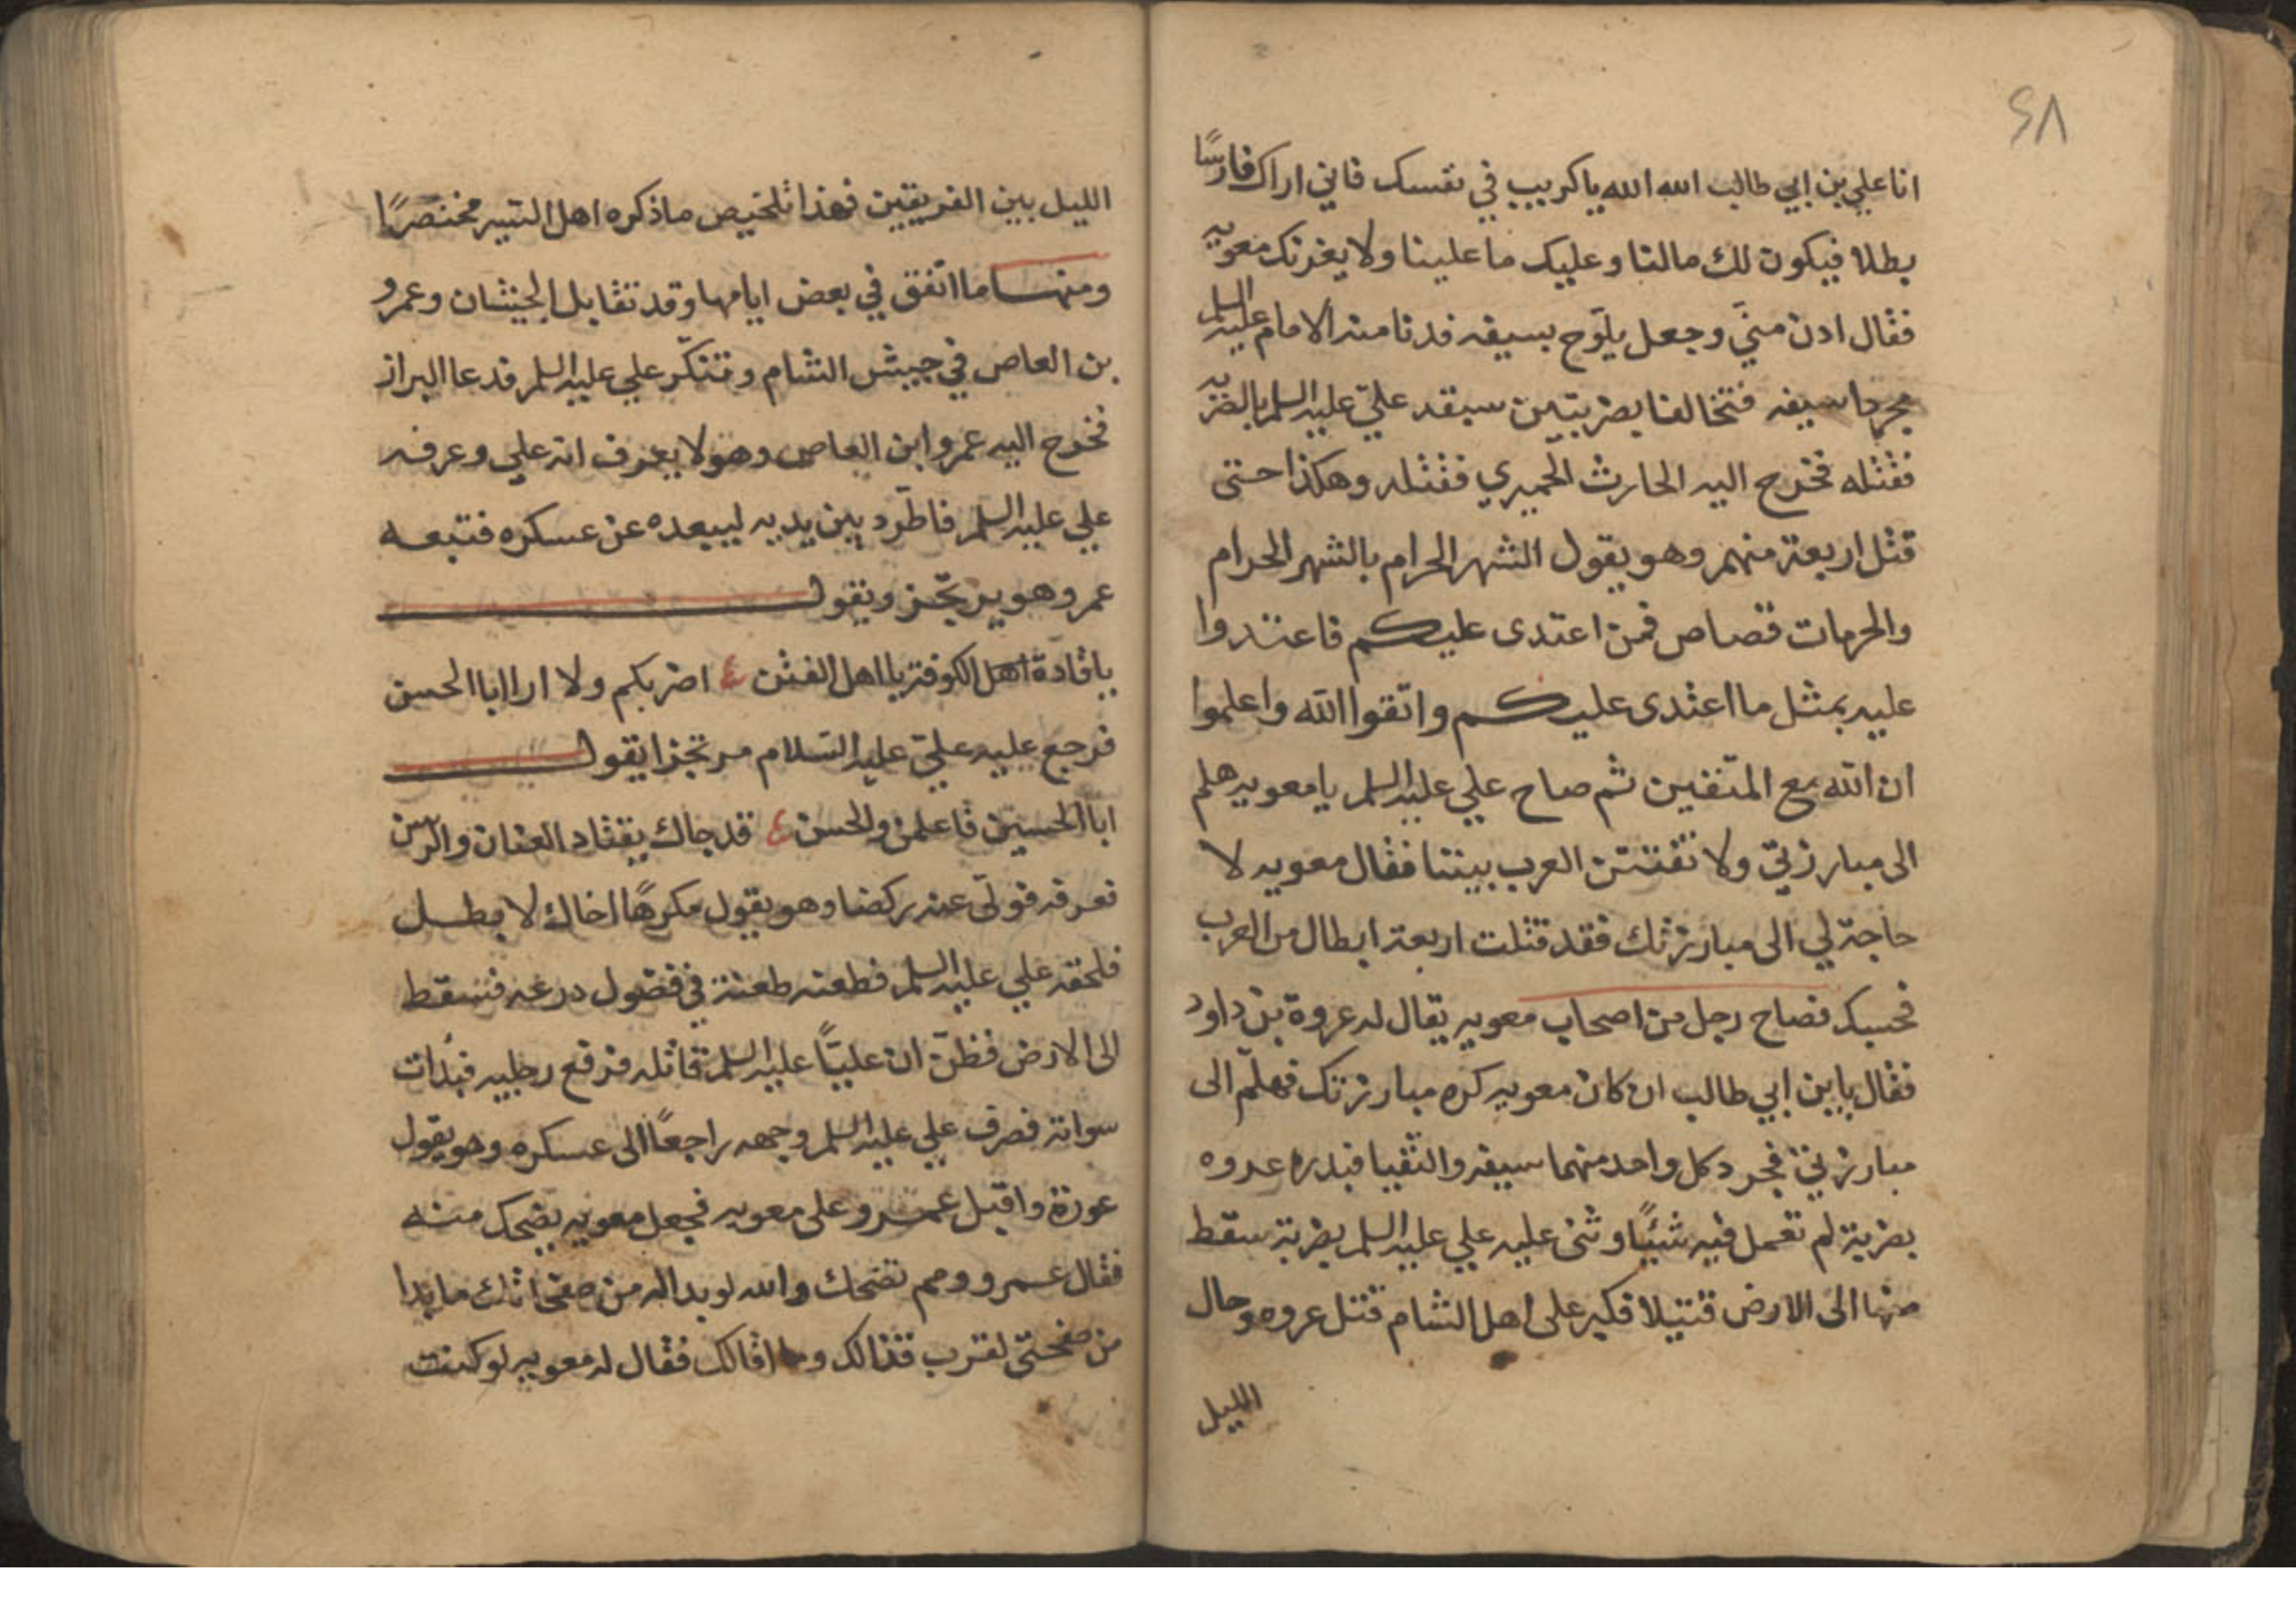 ٤٨
انا علي بن ابي طالب الله الله يا كريب في نفسك فاني اراك فارسًا
بطلا فيكون لك مالنا وعليك ما علينا ولا يغرنك معويه
فقال ادن منّي وجعل يلوّح بسيفه فدنا منه الامام عليه السلم
مجردا سيفه فتخالفا بضربتين سبقه عليّ عليه السلم بالضربه
فقتله فخرج اليه الحارث الحميري فقتله وهكذا حتى
قتل اربعة منهم وهو يقول الشهر الحرام بالشهر الحرام
والحرمات قصاص فمن اعتدى عليكم فاعتدوا
عليه بمثل ما اعتدى عليكم واتقوا الله واعلموا
ان الله مع المتقين ثم صاح علي عليه السلم يا معويه هلم
الى مبارزتي ولا تفتتن العرب بيننا فقال معويه لا
حاجة لي الى مبارزتك فقد قتلت اربعة ابطال من العرب
فحسبك فصاح رجل من اصحاب معويه يقال له عروة بن داود
فقال يا بن ابي طالب ان كان معويه كره مبارزتك فهلمّ الى
مبارزتي فجرد كل واحد منهما سيفه والتقيا فبدره عدوه
بضربة لم تعمل فيه شيئًا وثنى عليه علي عليه السلم بضربة سقط
منها الى الارض قتيلا فكبر على اهل الشام قتل عروه وحال
الليل
الليل بين الفريقين فهذا تلخيص ما ذكره اهل السير مختصرًا
ومنها ما اتّفق في بعض ايامها وقد تقابل الجيشان وعمرو
بن العاص في جيش الشام وتنكّر علي عليه السلم فدعا البراز
فخرج اليه عمرو ابن العاص وهو لا يعرف انه علي وعرفه
علي عليه السلم فاطّرد بين يديه ليبعده عن عسكره فتبعه
عمرو وهو يرتجّز ويقول
يا قادة اهل الكوفة يا اهل الفتن اضربكم ولا ارا ابا الحسن
فرجع عليه عليّ عليه السّلام مرتجزا يقول
ابا الحسين فاعلمن والحسن قد جاك يقتاد العنان والرسن
فعرفه فولّى عنه ركضا وهو يقول مكرهًا اخاك لا بطل
فلحقه علي عليه السلم فطعنه طعنة في فضول درعه فسقط
الى الارض فظنّ ان عليّاً عليه السلم قاتله فرفع رجليه فبدات
سواته فصرف علي عليه السلم وجهه راجعًا الى عسكره وهو يقول
عورة واقبل عمرو على معويه فجعل معويه يضحك منه
فقال عمرو ومم تضحك والله لو بدا له من صفحتك ما بدا
من صفحتي لقرب قذالك فقال له معويه لو كنت